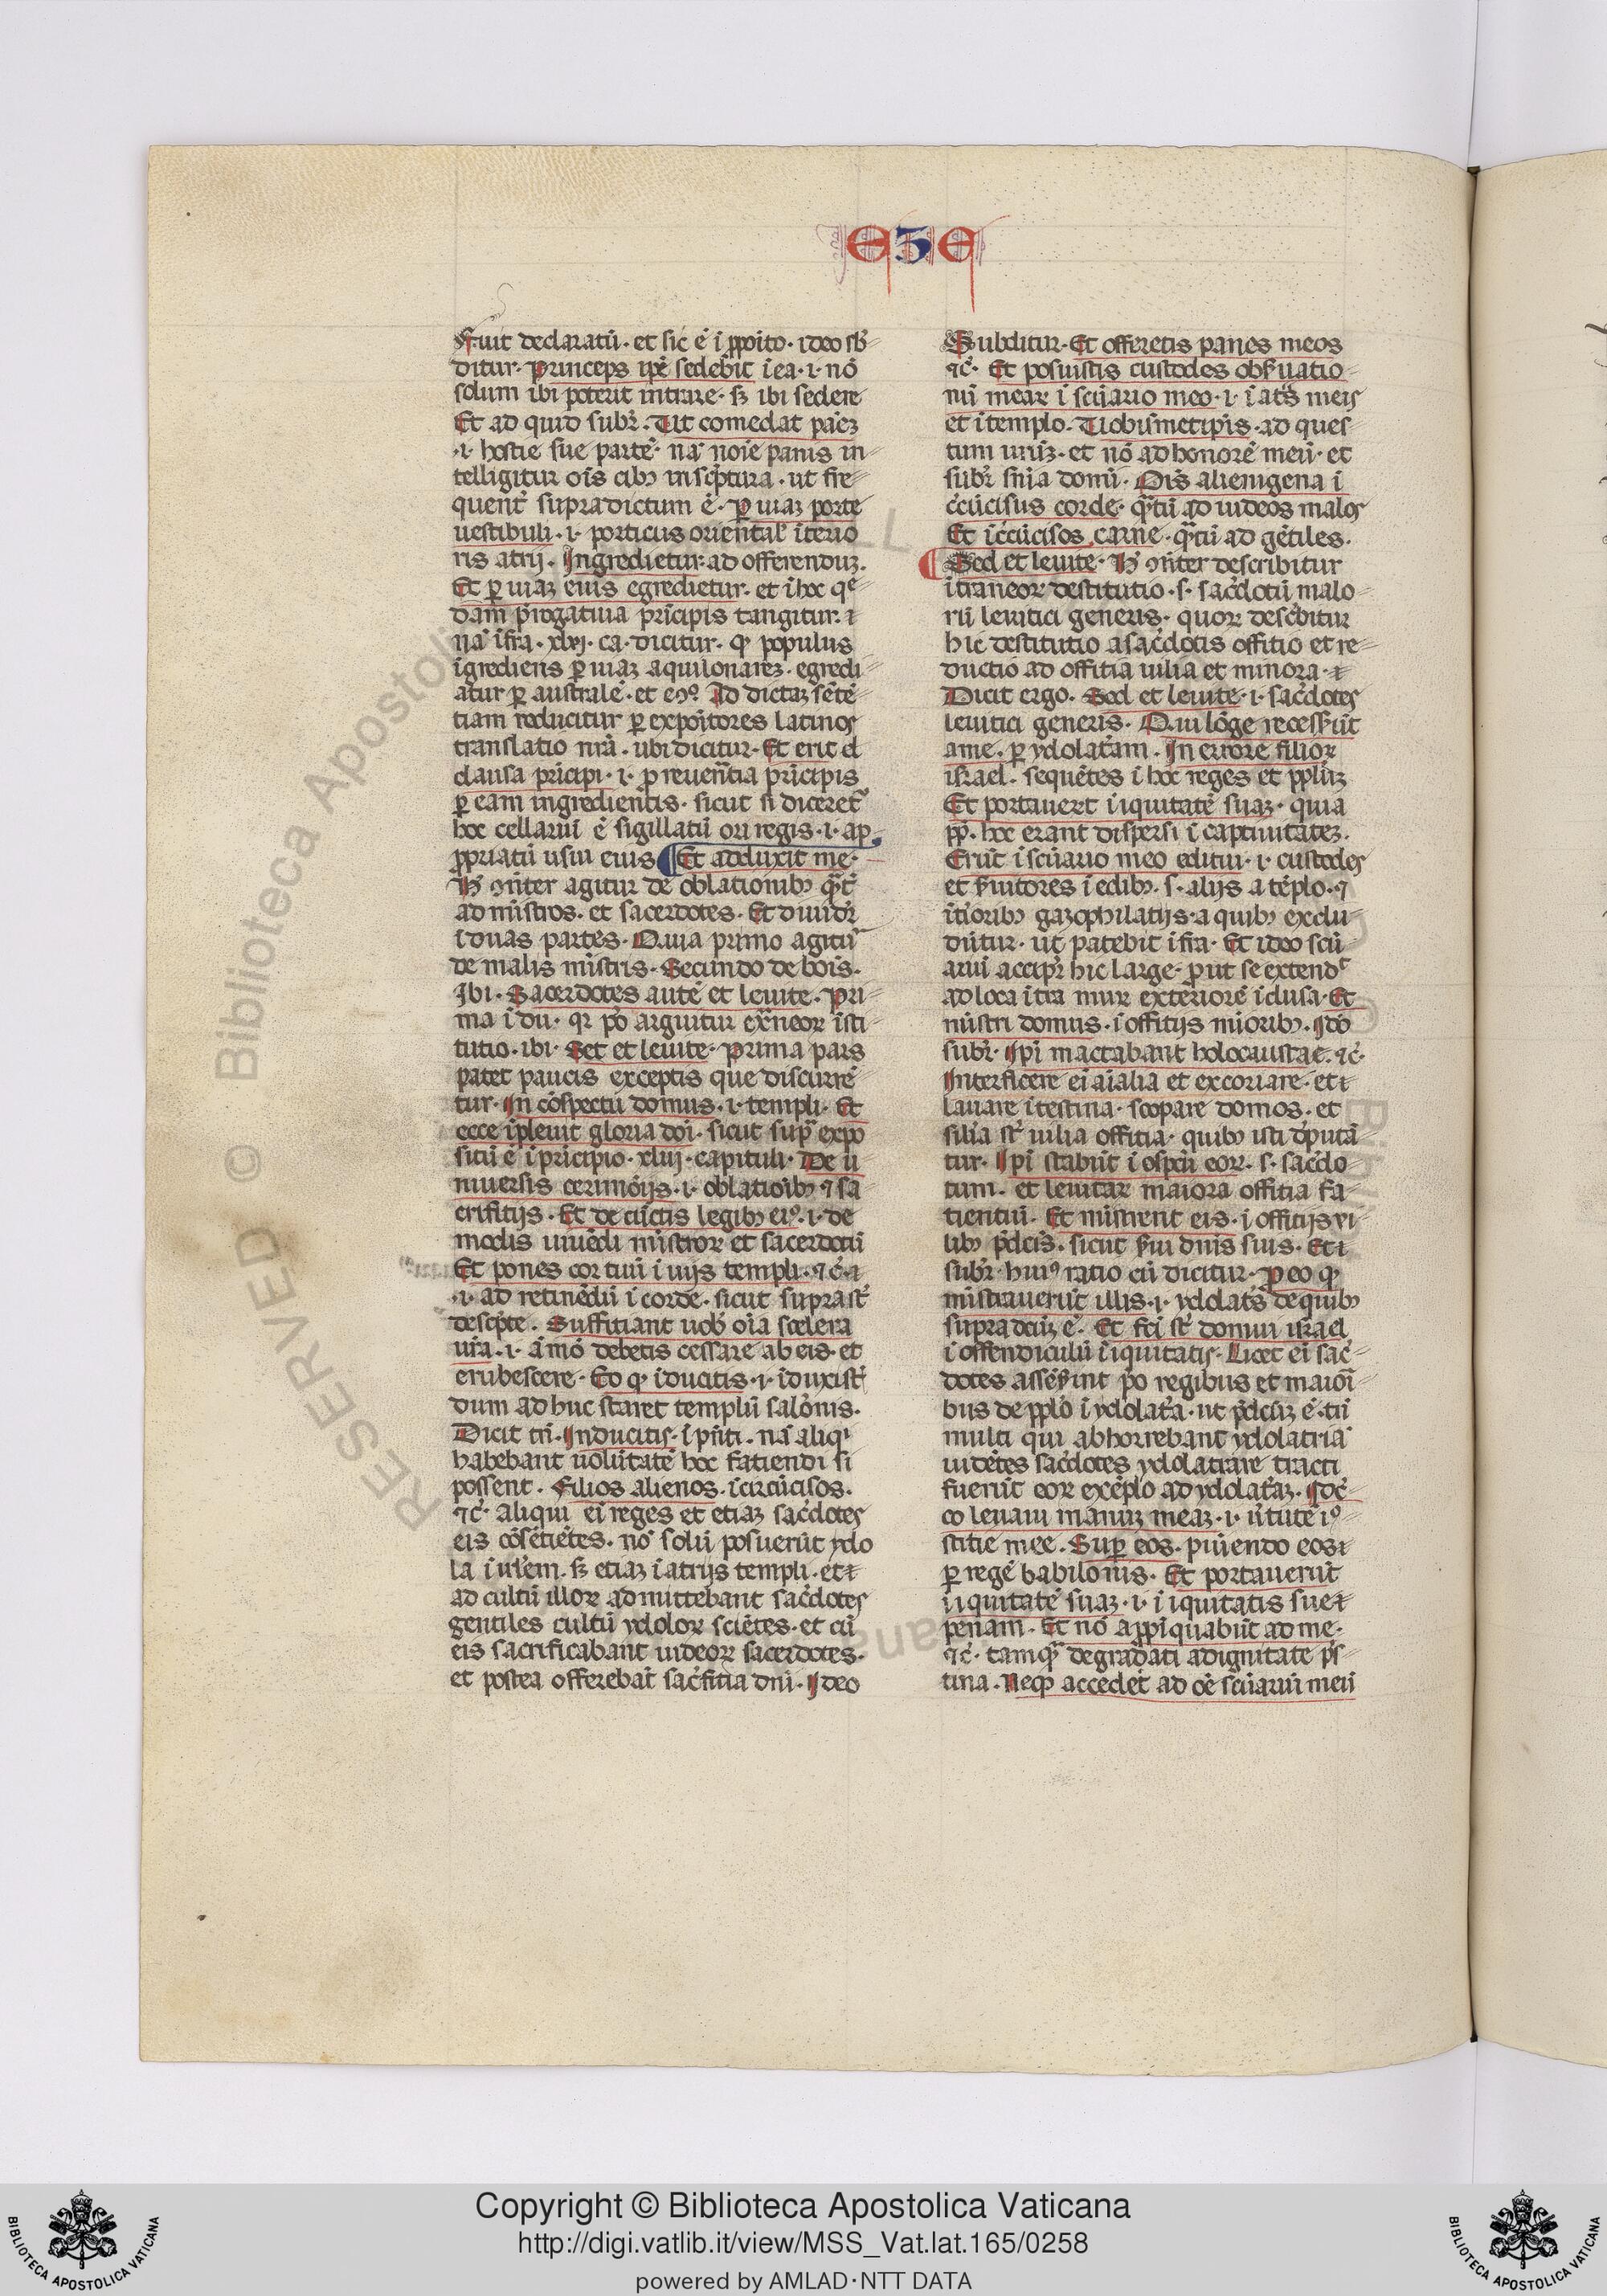 EZE
fuit declaratū. et sic ē i ꝓpoīto. ideo sb̄
ditur. Princeps ip̄e sedebit i ea. i. nō
solum ibi poterit intrare. sꝫ ibi sedere
Et ad quid subr̄. Ut comedat panē
.i. hostie sue partē. nā noīe panis in
telligitur oīs cibꝰ in scptura. ut fre
quent̄ supradictum ē. ꝑ uiaꝫ porte
uestibuli. i. porticus oriental̄ iterio
ris atrij. Ingredietur. ad offerenduꝫ.
Et ꝑ uiaꝫ eius egredietur. et i hoc qͤ
dam p̄rogatiua pricipis tangitur. ⁊
nā ifra. xlvj. ca. dicitur. ꝙ populus
igrediens ꝑ uiaꝫ aquilonareꝫ. egredi
atur ꝑ australē. et eꝯͦ. Ad dictaꝫ sētē
tiam reducitur ꝑ expoitores latinos
translatio nr̄a. ubi dicitur. Et erit
clausa pricipi. i. ꝓ reuerētia pricipis
ꝑ eam ingredientis. sicut si diceret̄
hoc cellariū ē sigillatū ori regis. i. ap
ꝓpriatū usui eius ¶ Et adduxit me.
H̄ ꝯn̄ter agitur de oblationibꝰ quāt̄
ad mīstros. et sacerdotes. Et diuidr̄
i duas partes. Quia primo agitur
de malis mīstris. Secundo de bōis.
Ibi. Sacerdotes autē et leuite. Pri
ma i du. qr̄ pͦ arguitur extͣneoꝝ isti
tutio. ibi. Set et leuite. Prima pars
patet paucis exceptis que discurrē
tur. In cōspectu domus. i. templi. Et
ecce ipleuit gloria doī. sicut supͣ expo
situ ē i pricipio. xliij. capituli. De u
niuersis cerimōijs. i. oblatioībꝰ ⁊ sa
crifitijs. Et de cūctis legibꝰ eiꝰ. i. de
modis uiuēdi mīstroꝝ et sacerdotū
Et pones cor tuū i uijs templi. ⁊c̄.
.i. ad retinēdū i corde. sicut supra st̄
desc̄pte. Suffitiant uob̄ oīa scelera
ur̄a. i. āmō debetis cessare ab eis. et
erubescere. Eo ꝙ iducitis. i. iduxist̄
dum adhuc staret templū salōnis.
Dicit tn̄. Inducitis. i pn̄ti. nā aliqͥ
habebant uolūtatē hoc fatiendi si
possent. Filios alienos. icircūcisos.
⁊c̄. aliqui ei reges et etiaꝫ sac̄dotes
eis cōsētiētes. nō solū posuerūt ydo
la i ur̄lem. sꝫ etiaꝫ i atrijs templi. et
ad cultū illoꝝ admittebant sac̄dotes
gentiles cultū ydoloꝝ sciētes. et cū
eis sacrificabant iudeoꝝ sacerdotes.
et postea offerebāt sac̄fitia dn̄i. Ideo
Subditur. Et offeretis panes meos
⁊c̄. Et posuistis custodes obẜuatio
nū meaꝝ i scūario meo. i. i atr̄s meis
et i templo. Uobismetipis. ad ques
tum ur̄uꝫ. et nō ad honorē meū. et
subr̄ sn̄ia domī. Oīs alienigena i
c̄cūcisus corde. quātū ad iudeos malos
Et ic̄cūcisos carne. quātū ad gētiles.
¶ Sed et leuite. H̄ ꝯn̄ter describitur
itraneoꝝ destitutio. s. sac̄dotū malo
rū leuitici generis. quoꝝ desc̄bitur
hic destitutio a sac̄dotis offitio et re
ductio ad offitia uilia et minora. ⁊
Dicit ergo. Sed et leuite. i. sac̄dotes
leuitici generis. Qui lōge recesẜūt
a me. ꝑ ydolat̄am. In errore filioꝝ
israel. sequētes i hoc reges et ppl̄uꝫ
Et portauer̄t iiquitatē suaꝫ. quia
ꝓp̄. hoc erant dispersi i captiuitateꝫ.
Erūt i scūario meo editui. i. custodes
et ẜuitores i edibꝰ. s. alijs a tēplo. ⁊
it̄ioribꝰ gazophilatijs. a quibꝰ exclu
dūtur. ut patebit ifra. Et ideo scū
ariū accipr̄ hic large. ꝓut se extendͭ
ad loca itra muꝝ exteriorē iclusa. Et
mīstri domus. i offitijs mīoribꝰ. Idō
subr̄. Ipi mactabant holocaustat. ⁊c̄.
Interficere ei aīalia et excoriare. et
lauare itestina. scopare domos. et
sīlia st̄ uilia offitia. quibꝰ isti dputā
tur. Ipi stabūt i ꝯspc̄u eoꝝ. s. sac̄do
tum. et leuitaꝝ maiora offitia fa
tientiū. Et mīstrent eis. i offitijs vi
libꝰ p̄dc̄is. sicut ẜui dn̄is suis. Et
subr̄ huiꝰ ratio cū dicitur. Pro eo ꝙ
mīstrauerūt illis. i. ydolat̄s de quibꝰ
supra dc̄uꝫ ē. Et fc̄i st̄ domui israel
i offendiculū iiquitatis. Licet ei sac̄
dotes assēẜint pͦ regibus et maiori
bus de ppl̄o i ydolat̄a. ut p̄dc̄uꝫ ē. tn̄
multi qui abhorrebant ydolatriā
uidētes sac̄dotes ydolatrare tracti
fuerūt eoꝝ exēplo ad ydolat̄aꝫ. Idc̄
co leuaui manuꝫ meaꝫ. i. ūtutē iꝰ
stitie mee. Suꝑ eos. puīendo eos
ꝑ regē babilonis. Et portauerūt
iiquitatē suaꝫ. i. iiquitatis sue
penam. Et nō appīquabūt ad me.
⁊c̄. tamqͣ degradati a dignitate pͥs
tina. Neqꝫ accedēt ad oē scūariū meū
Copyright © Biblioteca Apostolica Vaticana
http://digi.vatlib.it/view/MSS_Vat.lat.165/0258
powered by AMLAD·NTT DATA
BIBLIOTECA APOSTOLICA VATICANA
BIBLIOTECA APOSTOLICA VATICANA